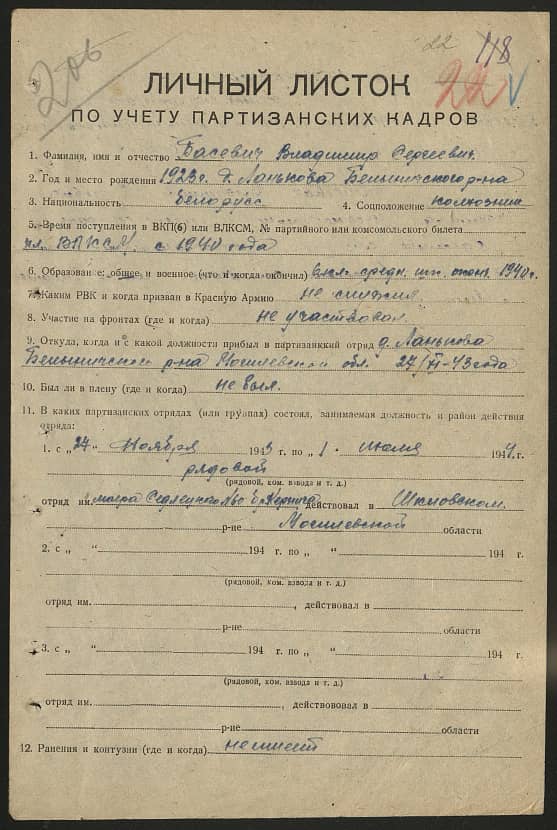 206
22
118
22 V
ЛИЧНЫЙ ЛИСТОК
ПО УЧЕТУ ПАРТИЗАНСКИХ КАДРОВ
1. Фамилия, имя и отчество Басевич Владимир Сергеевич
2. Год и место рождения 1923г. д. Ланькова Белыничского р-на
3. Национальность белорусс 4. Соцположение колхозник
5. Время поступления в ВКП(б) или ВЛКСМ, № партийного или комсомольского билета
чл. ВЛКСМ с 1940 года
6. Образование: общее и военное (что и когда окончил) средн. 1940г.
7. Каким РВК и когда призван в Красную Армию не служил.
8. Участие на фронтах (где и когда) не участвовал.
9. Откуда, когда и с какой должности прибыл в партизанский отряд д. Ланькова
Белыничского р-на Могилевской обл. 27/XI-43 года
10. Был ли в плену (где и когда) не был.
11. В каких партизанских отрядах (или группах) состоял, занимаемая должность и район действия
отряда:
1. с „27“ Ноября 1943 г. по „1“ июля 1944 г.
рядовой
(рядовой, ком. взвода и т. д.)
отряд им. действовал в Шкловском
р-не Могилевской области
2. с „ “ 194 г. по „ “ 194 г.
(рядовой, ком. взвода и т. д.)
отряд им. , действовал в
р-не области
3. с „ “ 194 г. по „ “ 194 г.
(рядовой, ком. взвода и т. д.)
отряд им. , действововал в
р-не области
12. Ранения и контузии (где и когда) не имеет